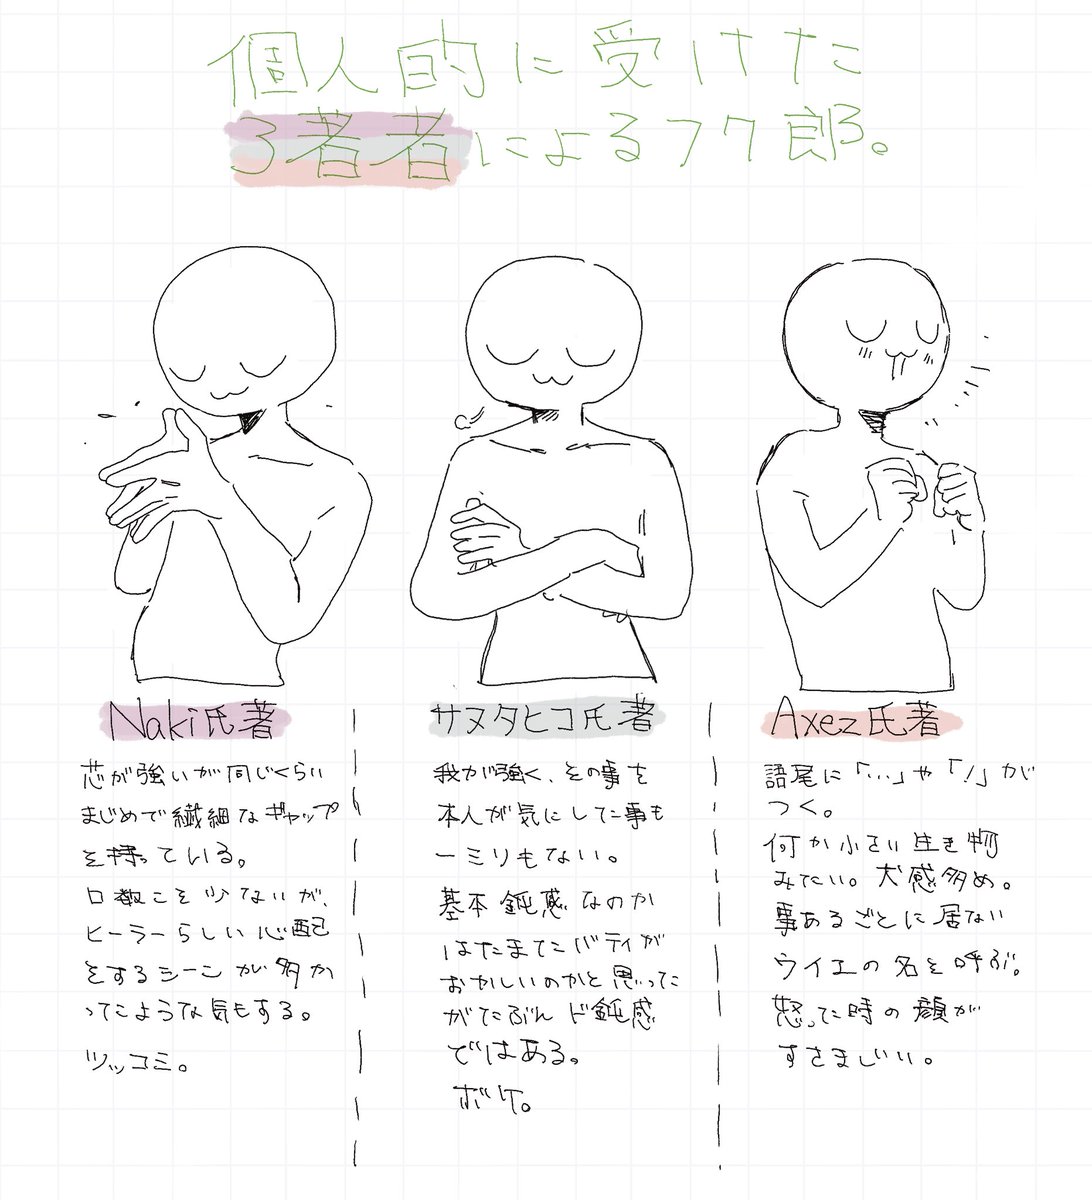 個人的に受けた
3著者によるフク郎。
Naki氏著
芯が強いが同じくらい
まじめで繊細なギャップ
を持っている。
口数こそ少ないが、
ヒーラーらしい心配
をするシーンが多か
ってたような気もする。
ツッコミ。
サヌタヒコ氏著
我が強く、その事を
本人が気にしてた事も
一ミリもない。
基本鈍感なのか
はたまたバディが
おかしいのかと思ってた
がたぶんド鈍感
ではある。
ボケ。
Axez氏著
語尾に「…」や「!」が
つく。
何か小さい生き物
みたい。犬感多め。
事あるごとに居ない
ウイエの名を呼ぶ。
怒った時の顔が
すさまじい。